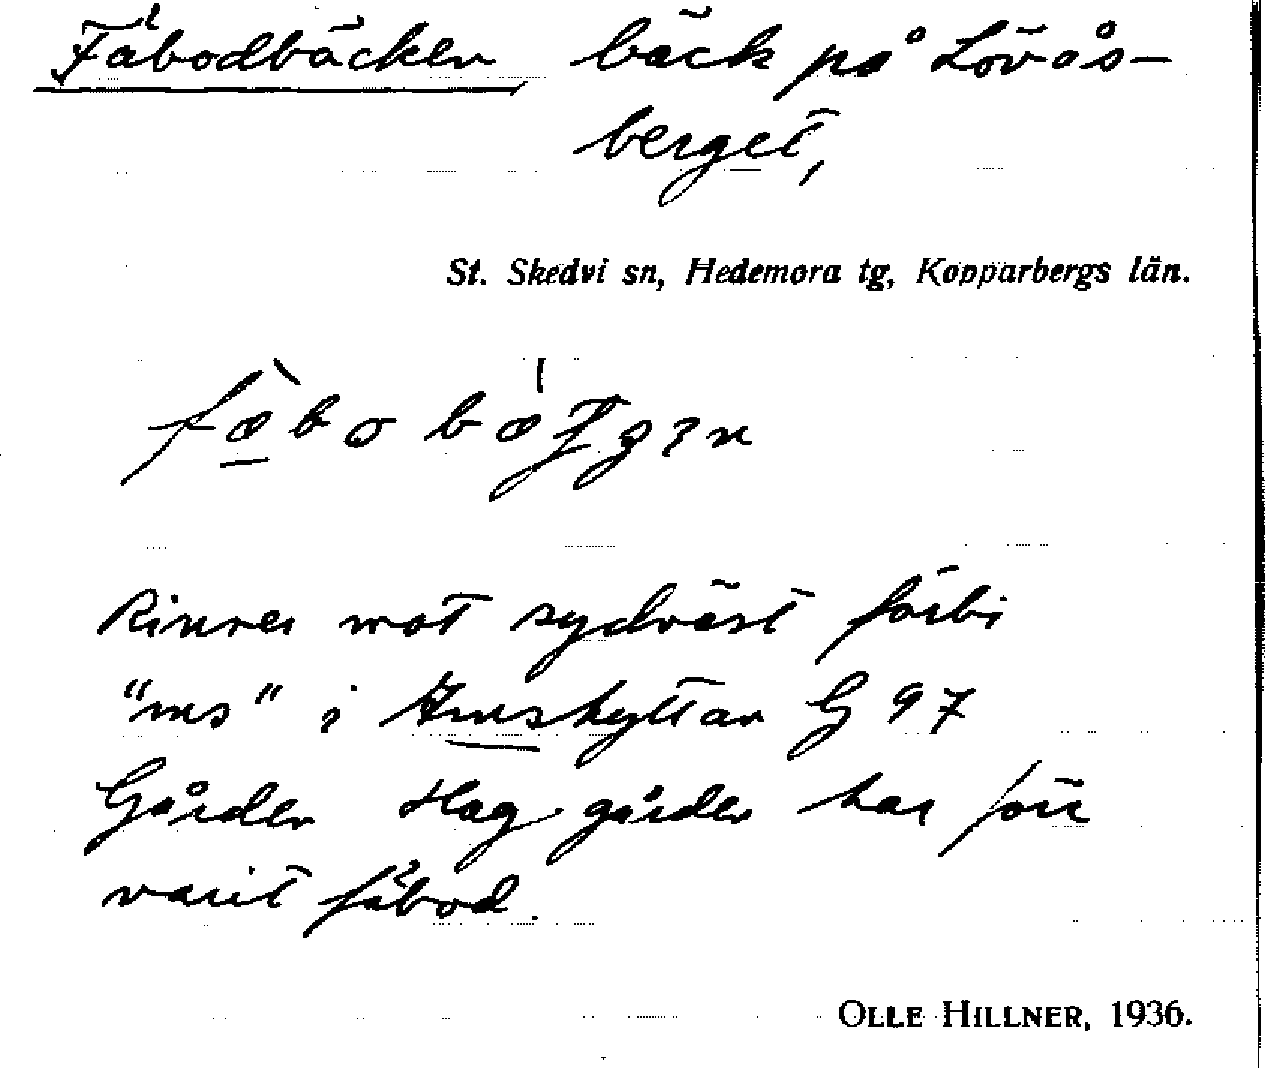 Fäbodbäcken bäck på Lövås-
berget,
St. Skedvi sn, Hedemora tg, Kopparbergs län.
Rinner mot sydväst förbi
"ms" i Amshyttan G 97
Gården Haggården har förr
varit fäbod.
OLLE HILLNER, 1936.